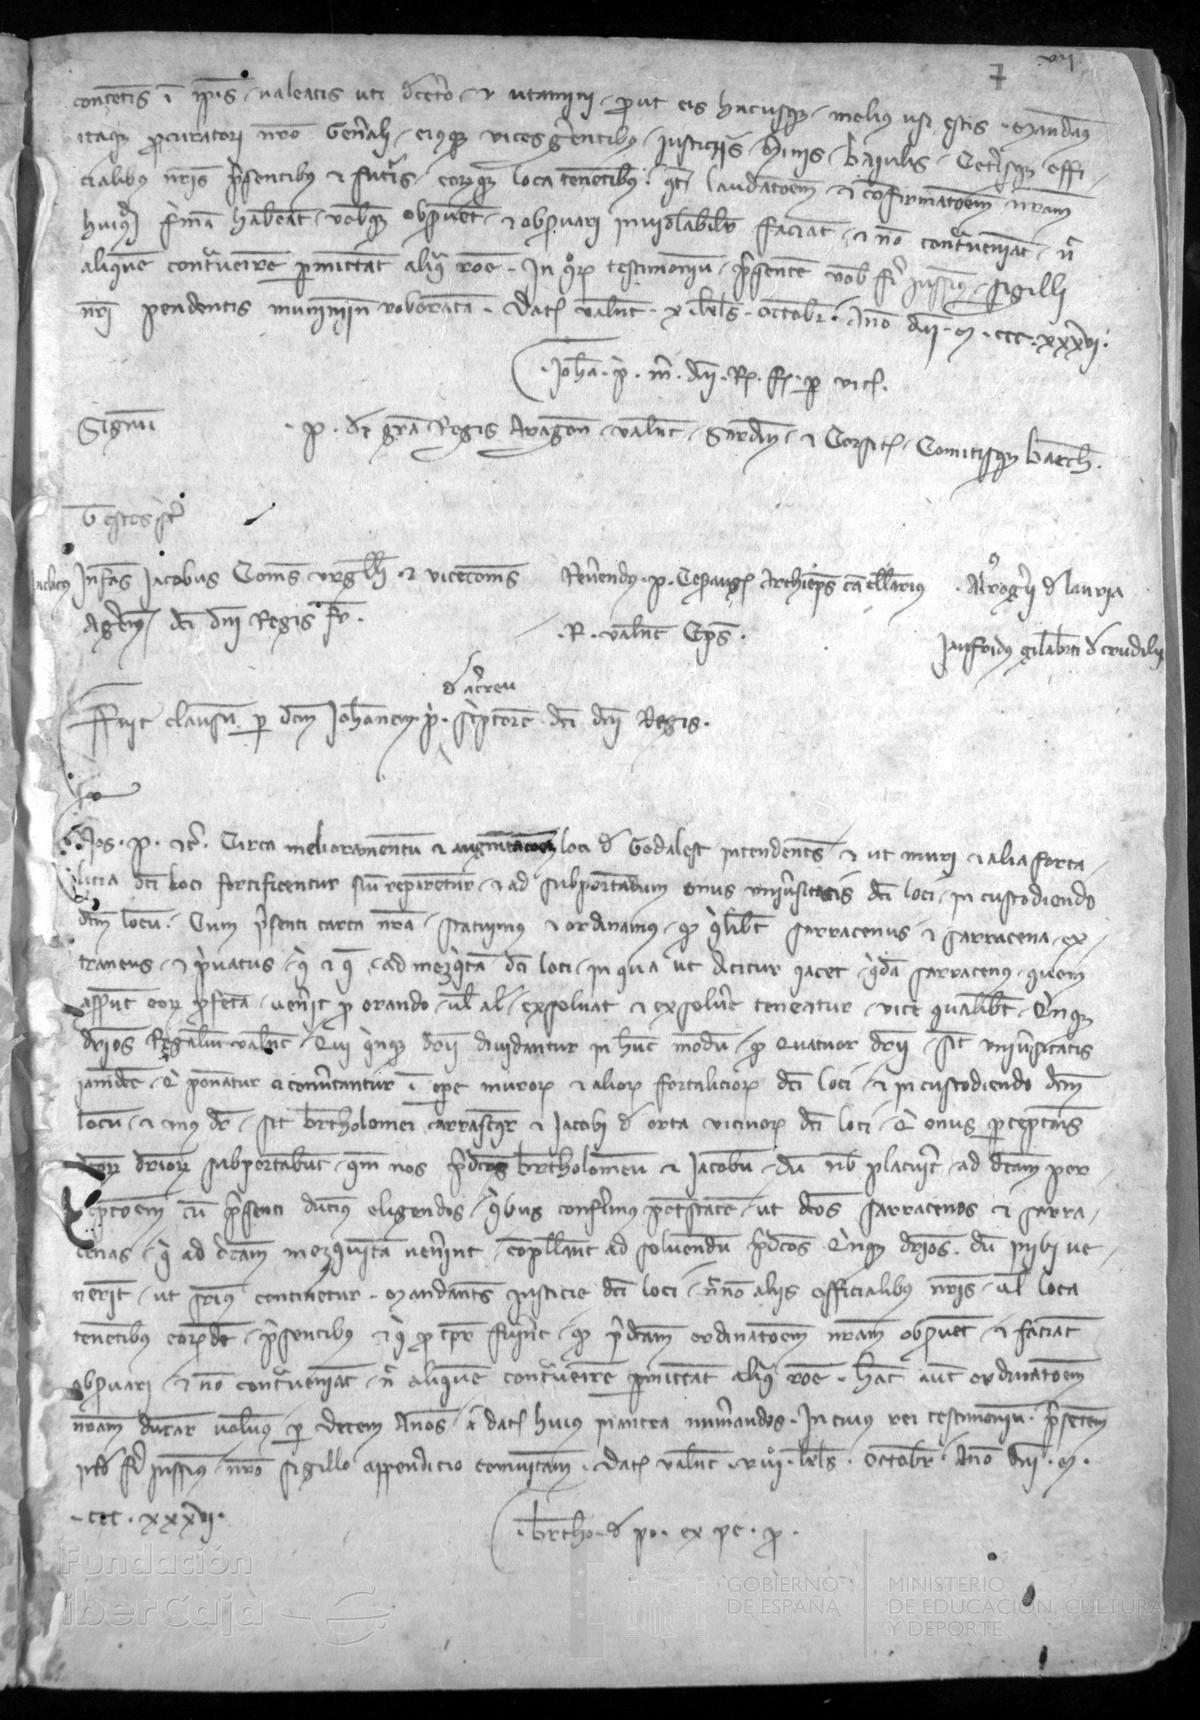 vii
7
contentis in ipsis valeatis uti decetero et utamini prout eis hucusque melius usi estis. Mandamus
itaque procuratori nostro Generali eiusque vicesgerentibus justiciis baiulis Ceterisque offi
cialibus nostris presentibus et futuris eorumque loca tenentibus quod laudationem et confirmationem nostram
huiusmodi firmam habeant vobisque observent et observari inviolabiliter faciant et non contraveniant nec
aliquem contravenire permittant aliqua racione. In quorum testimonium presentem vobis fieri jussimus sigilli
nostri pendentis munimine roboratam. Datum Valencie x kalendas octobris Anno domini M CCC xxxvi.
Johan p m dni R f p vicf
Signum P. dei gratia Regis Aragonum Valencie Sardinie et Corsice Comitisque Barchinone.
Testes sunt
Infans Jacobus Comes Urgelli et vicecomes
Agerensis dicti domini Regis frater
Reverendus P. Cesaraugustanus Archiepiscopus cancellarius
R. Valencie Episcopus.
A Rogerii de lauria
Jaufridus gilaberti de crudiliis
Fuit clausum per dictum Johannem p de acreu scriptorem dicti domini Regis.
Nos P. etc. Circa melioramentum et augmentacionem loci de Godalest intendentes et ut muri et alia forta
licia dicti loci fortificentur sive reparentur et ad subportandum onus universitatis dicti loci in custodiendo
dictum locum. Cum presenti carta nostra statuimus et ordinamus quod quilibet sarracenus et sarracena ex
traneus et privatus qui et que ad mezquitam dicti loci in qua ut dicitur iacet quidam sarracenus quem
asserunt eorum prophetam venerit pro orando vel alias exsolvat et exsolvere teneatur vice qualibet quinque
denarios Regalium Valencie Qui quinque denarii dividantur in hunc modum quod quatuor denarii sint universitatis
iamdicte et ponantur et convertantur in opere murorum et aliorum fortaliciorum dicti loci et in custodiendo dictum
locum et unus denarius sit bertholomei carrasquer et Jacobi de orta vicinorum dicti loci Qui onus perceptionis
dictorum denariorum subportabunt quem nos predictos bertholomeum et Jacobum dum nobis placuerit ad dictam per
cepcionem cum presenti ducimus eligendos quibus conferimus potestatem ut dictos sarracenos et sarra
cenas qui ad dictam mezquitam venerint compellant ad solvendum predictos quinque denarios dum inibi ve
nerint ut superius continetur. Mandantes justicie dicti loci necnon aliis officialibus nostris vel loca
tenentibus eorumdem presentibus et qui pro tempore fuerint quod predictam ordinationem nostram observent et faciant
observari et non contraveniant nec aliquem contravenire permittant aliqua racione. Hanc autem ordinationem
nostram durare volumus per decem Annos a data huius in antea numerandos. In cuius rei testimonium presentem
inde fieri jussimus nostro sigillo appendicio communitam. Datum Valencie viii kalendas octobris Anno domini M
CCC xxxvi.
bertho de po ex pe p
Fundación
iberCaja
GOBIERNO
DE ESPAÑA
MINISTERIO
DE EDUCACIÓN, CULTURA
Y DEPORTE